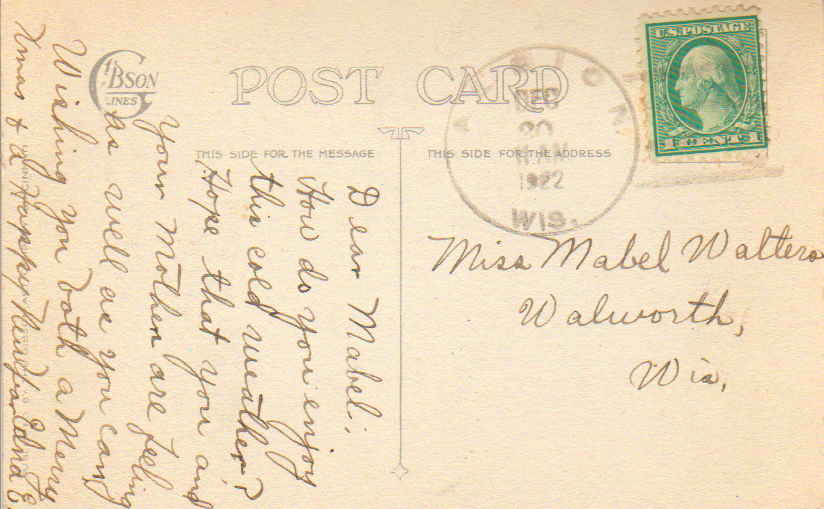 GIBSON
LINES
POST CARD
THIS SIDE FOR THE MESSAGE
THIS SIDE FOR THE ADDRESS
ALBION
DEC
20
1922
WIS.
U.S. POSTAGE
1 CENT 1
Dear Mabel:
How do you enjoy
this cold weather?
Hope that you and
your Mother are feeling
as well as you can.
Wishing you both a Merry
Xmas & a Happy New Year Edna E.
Miss Mabel Walters
Walworth,
Wis.